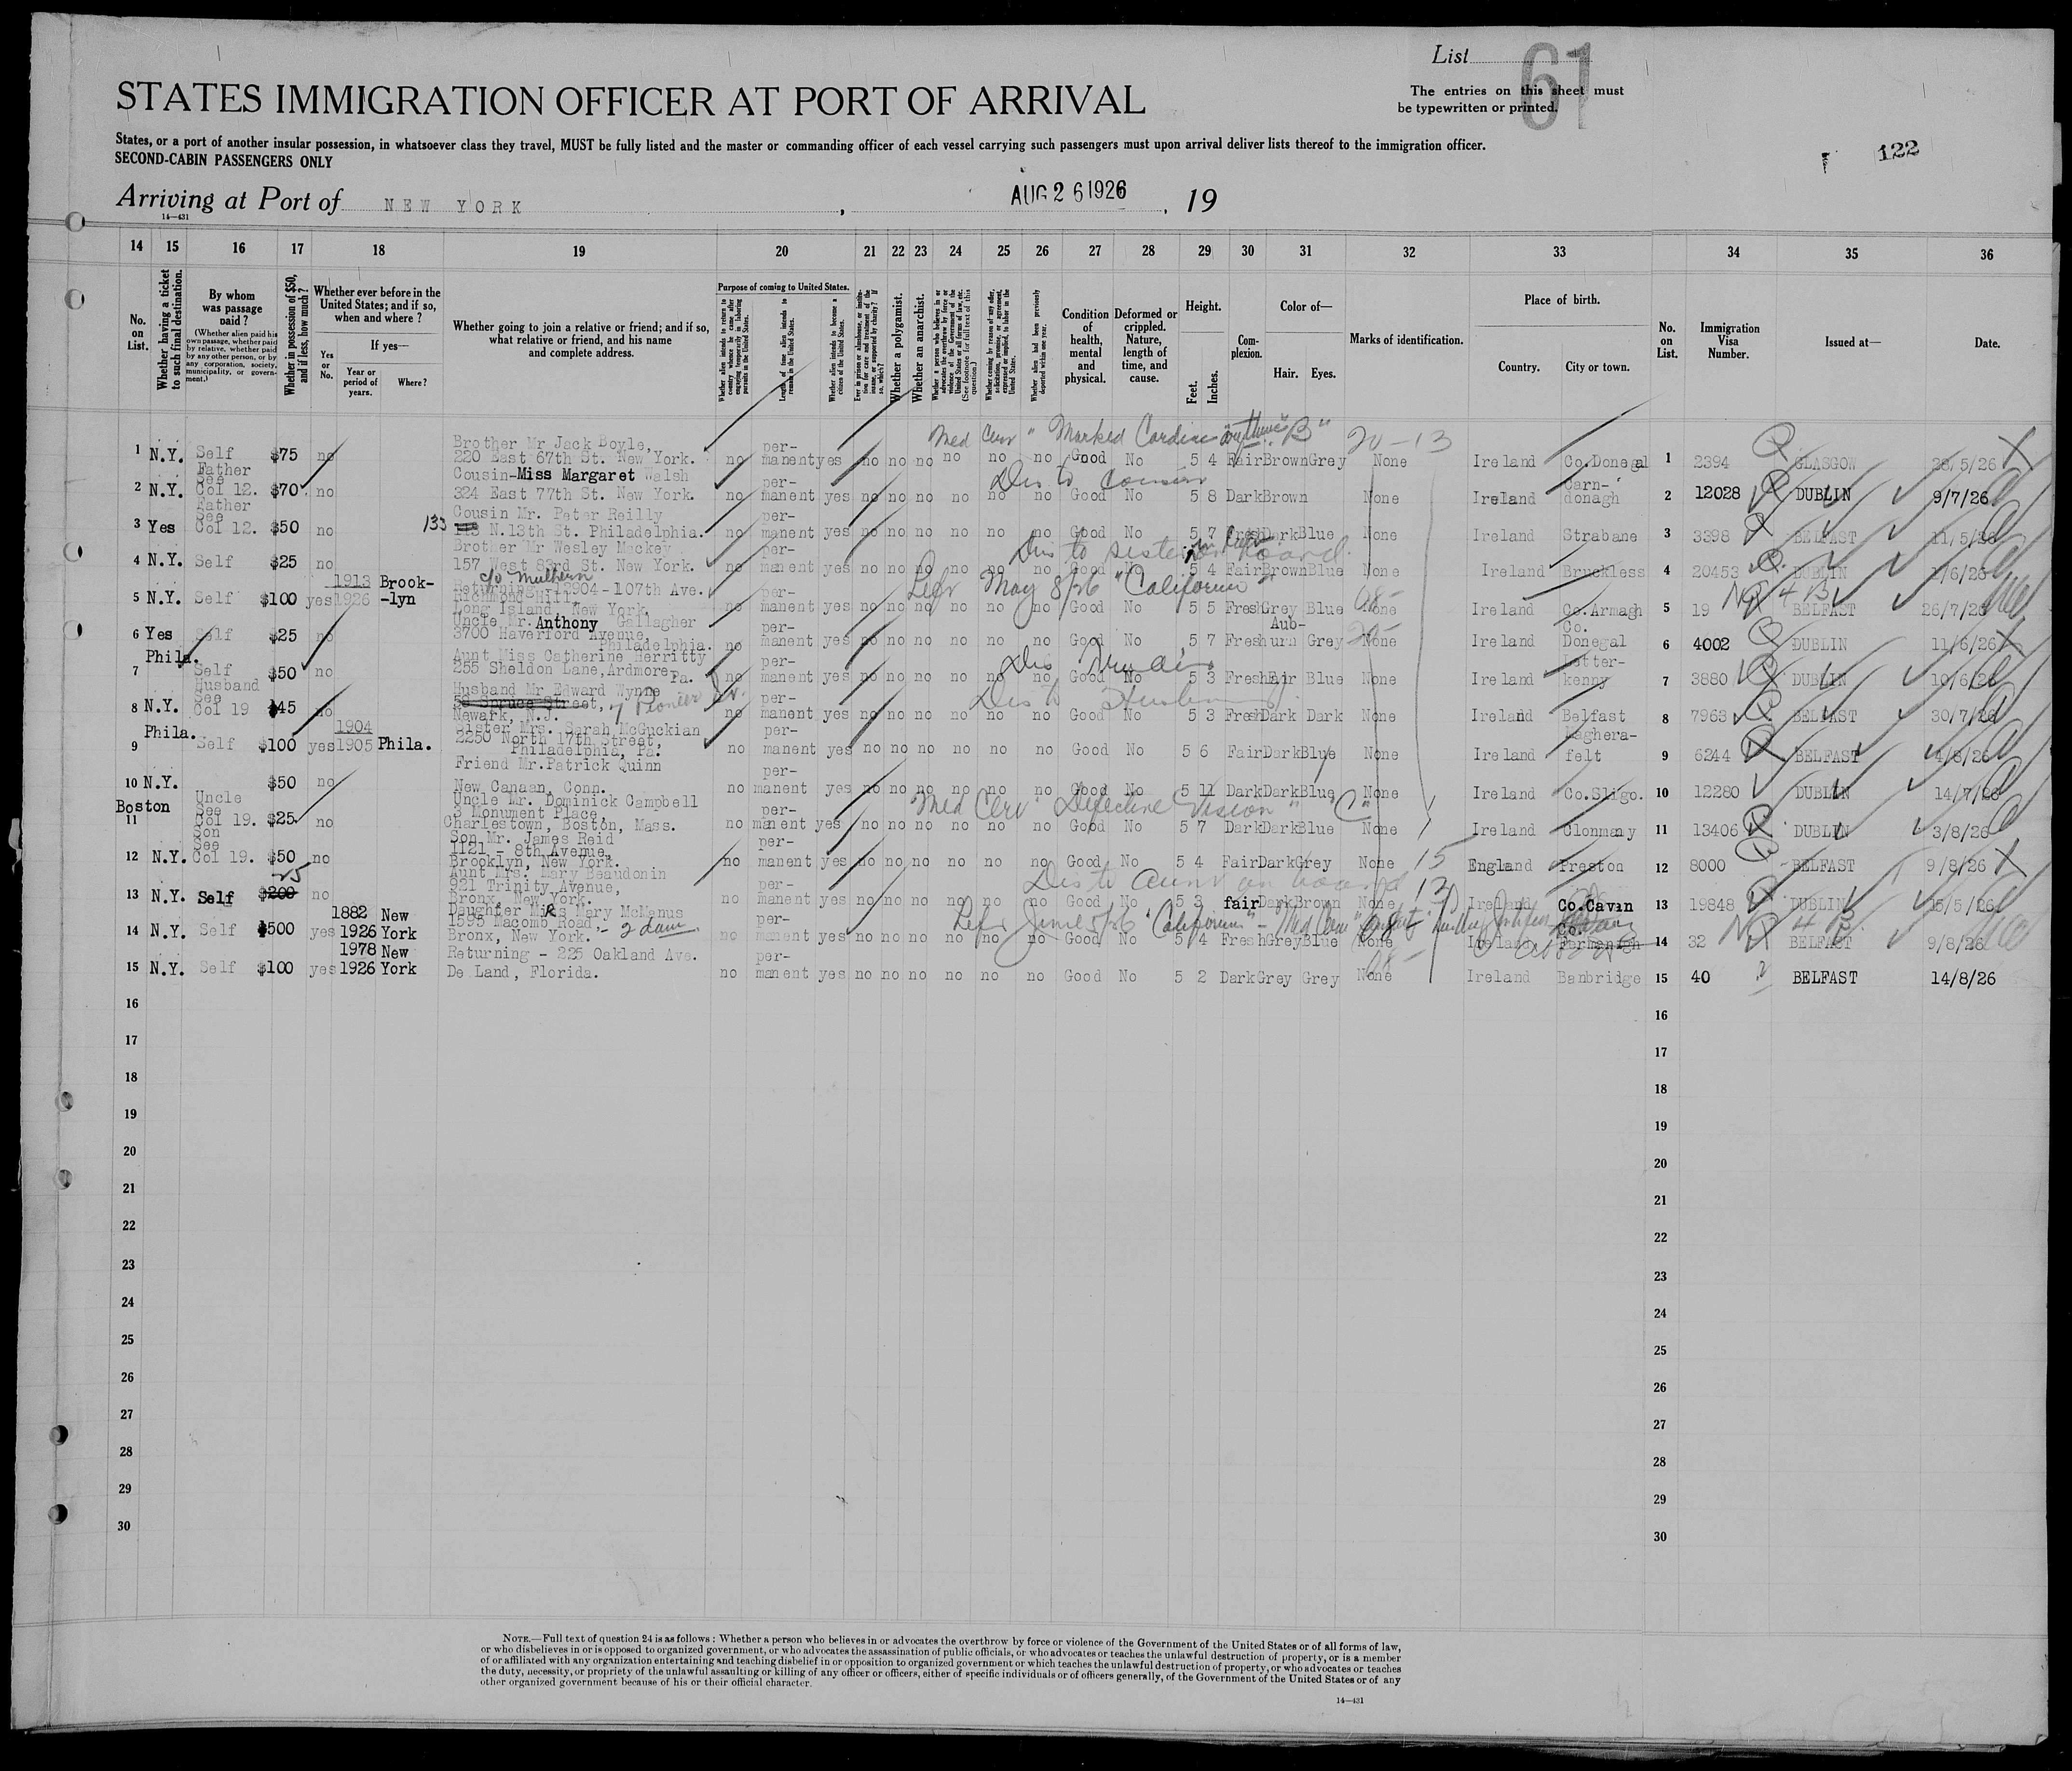 List 61
The entries on this sheet must
be typewritten or printed.
STATES IMMIGRATION OFFICER AT PORT OF ARRIVAL
States, or a port of another insular possession, in whatsoever class they travel, MUST be fully listed and the master or commanding officer of each vessel carrying such passengers must upon arrival deliver lists thereof to the immigration officer.
SECOND-CABIN PASSENGERS ONLY
122
Arriving at Port of NEW YORK, AUG 26 1926, 19
14—431
14 15 16 17 18 19 20 21 22 23 24 25 26 27 28 29 30 31 32 33 34 35 36
No. on List.
Whether having a ticket to such final destination.
By whom was passage paid?
(Whether alien paid his own passage, whether paid by relative, whether paid by any other person, or by any corporation, society, municipality, or government.)
Whether in possession of $50, and if less, how much?
Whether ever before in the United States; and if so, when and where?
If yes—
Yes or No.
Year or period of years.
Where?
Whether going to join a relative or friend; and if so, what relative or friend, and his name and complete address.
Purpose of coming to United States.
Whether a polygamist.
Whether an anarchist.
Condition of health, mental and physical.
Deformed or crippled. Nature, length of time, and cause.
Height.
Feet. Inches.
Complexion.
Color of—
Hair. Eyes.
Marks of identification.
Place of birth.
Country. City or town.
No. on List.
Immigration Visa Number.
Issued at—
Date.
1 N.Y. Self $75 no Brother Mr Jack Boyle, 220 East 67th St. New York. no permanent yes no no no no no no Good No 5 4 Fair Brown Grey None Ireland Co.Donegal 1 2394 GLASGOW 28/5/26
2 N.Y. Father See Col 12. $70 no Cousin-Miss Margaret Walsh 324 East 77th St. New York. no permanent yes no no no no no no Good No 5 8 Dark Brown None Ireland Carn-donagh 2 12028 DUBLIN 9/7/26
3 Yes Father See Col 12. $50 no Cousin Mr. Peter Reilly 133 N.13th St. Philadelphia. no permanent yes no no no no no no Good No 5 7 Fresh Dark Blue None Ireland Strabane 3 3398 BELFAST 11/5/26
4 N.Y. Self $25 no Brother Mr Wesley Mackey 157 West 83rd St. New York. no permanent yes no no no no no no Good No 5 4 Fair Brown Blue None Ireland Bruckless 4 20453 DUBLIN 1/6/26
5 N.Y. Self $100 yes 1913 1926 Brook-lyn c/o Mulhern Returning - 12904-107th Ave. Richmond Hill Long Island, New York. no permanent yes no no no no no no Good No 5 5 Fresh Grey Blue None Ireland Co.Armagh 5 19 BELFAST 26/7/26
6 Yes Phila. Self $25 no Uncle Mr. Anthony Gallagher 3700 Haverford Avenue, Philadelphia. no permanent yes no no no no no no Good No 5 7 Fresh Aub-urn Grey None Ireland Co. Donegal 6 4002 DUBLIN 11/6/26
7 Self $50 no Aunt Miss Catherine Herritty 255 Sheldon Lane, Ardmore, Pa. no permanent yes no no no no no no Good No 5 3 Fresh Fair Blue None Ireland Letter-kenny 7 3880 DUBLIN 10/6/26
8 N.Y. Husband See Col 19 $45 no Husband Mr Edward Wynne 58 Spruce Street, Newark, N.J. no permanent yes no no no no no no Good No 5 3 Fresh Dark Dark None Ireland Belfast 8 7963 BELFAST 30/7/26
9 Phila. Self $100 yes 1904 1905 Phila. Sister Mrs. Sarah McGuckian 2250 North 17th Street, Philadelphia, Pa. no permanent yes no no no no no no Good No 5 6 Fair Dark Blue None Ireland Maghera-felt 9 6244 BELFAST 4/8/26
10 N.Y. $50 no Friend Mr. Patrick Quinn New Canaan, Conn. no permanent yes no no no no no no Good No 5 11 Dark Dark Blue None Ireland Co.Sligo. 10 12280 DUBLIN 14/7/26
11 Boston Uncle See Col 19. $25 no Uncle Mr. Dominick Campbell 3 Monument Place, Charlestown, Boston, Mass. no permanent yes no no no no no no Good No 5 7 Dark Dark Blue None Ireland Clonmany 11 13406 DUBLIN 3/8/26
12 N.Y. Son See Col 19. $50 no Son Mr. James Reid 1121 - 8th Avenue, Brooklyn, New York. no permanent yes no no no no no no Good No 5 4 Fair Dark Grey None England Preston 12 8000 BELFAST 9/8/26
13 N.Y. Self $200 25 no Aunt Mrs. Mary Beaudonin 921 Trinity Avenue, Bronx, New York. no permanent yes no no no no no no Good No 5 3 fair Dark Brown None Ireland Co.Cavan 13 19848 DUBLIN 15/5/26
14 N.Y. Self $500 yes 1882 1926 New York Daughter Miss Mary McManus 1595 Macomb Road, Bronx, New York. no permanent yes no no no no no no Good No 5 4 Fresh Grey Blue None Ireland Co. Fermanagh 14 32 BELFAST 9/8/26
15 N.Y. Self $100 yes 1978 1926 New York Returning - 225 Oakland Ave. De Land, Florida. no permanent yes no no no no no no Good No 5 2 Dark Grey Grey None Ireland Banbridge 15 40 BELFAST 14/8/26
Med Cert "Marked Cardiac "B" 20-13
Dis to cousin
Dis to sister on board.
Left May 8/26 "California"
Dis to Husband
Med Cert "Defective Vision" "C"
Dis to aunt on board
Left June 5/26 "California"
16
17
18
19
20
21
22
23
24
25
26
27
28
29
30
NOTE.—Full text of question 24 is as follows: Whether a person who believes in or advocates the overthrow by force or violence of the Government of the United States or of all forms of law,
or who disbelieves in or is opposed to organized government, or who advocates the assassination of public officials, or who advocates or teaches the unlawful destruction of property, or is a member
of or affiliated with any organization entertaining and teaching disbelief in or opposition to organized government or which teaches the unlawful destruction of property, or who advocates or teaches
the duty, necessity, or propriety of the unlawful assaulting or killing of any officer or officers, either of specific individuals or of officers generally, of the Government of the United States or of any
other organized government because of his or their official character.
14—431